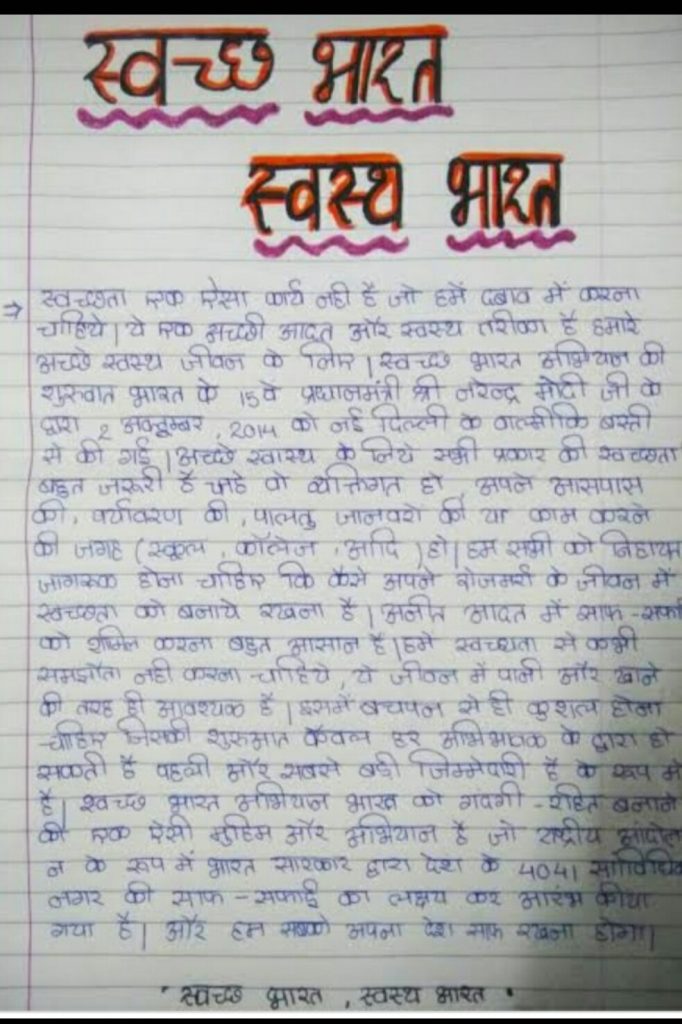 स्वच्छ भारत
स्वस्थ भारत
स्वच्छता एक ऐसा कार्य नही है जो हमें दबाव में करना
चाहिये। ये एक अच्छी आदत और स्वस्थ तरीका है हमारे
अच्छे स्वस्थ जीवन के लिए। स्वच्छ भारत अभियान की
शुरुवात भारत के 15वे प्रधानमंत्री श्री नरेन्द्र मोदी जी के
द्वारा 2 अक्टूम्बर, 2014 को नई दिल्ली के वाल्मीकि बस्ती
से की गई। अच्छे स्वास्थ के लिये सभी प्रकार की स्वच्छता
बहुत जरूरी है चाहे वो व्यक्तिगत हो अपने आसपास
की, पर्यावरण की, पालतु जानवरो की या काम करने
की जगह (स्कूल, कॉलेज, आदि) हो। हम सभी को
जागरूक होना चाहिए कि कैसे अपने रोजमर्रा के जीवन में
स्वच्छता को बनाये रखना है। आदत में साफ-सफाई
को शमिल करना बहुत आसान है। हमे स्वच्छता से कभी
समझौता नही करना चाहिये, ये जीवन में पानी और खाने
की तरह ही आवश्यक है। इसमें बचपन से ही कुशल होना
चाहिए जिसकी शुरुआत केवल हर अभिभावक के द्वारा हो
सकती है पहली और सबसे बड़ी जिम्मेदारी है के रूप में
है। स्वच्छ भारत अभियान भारत को गंदगी-रहित बनाने
की एक ऐसी मुहिम और अभियान है जो राष्ट्रीय आंदोल
न के रूप में भारत सारकार द्वारा देश के 4041 सांविधिक
नगर की साफ-सफाई का लक्ष्य कर आरंभ कीया
गया है। और हम सबको अपना देश साफ रखना होगा।
"स्वच्छ भारत, स्वस्थ भारत"